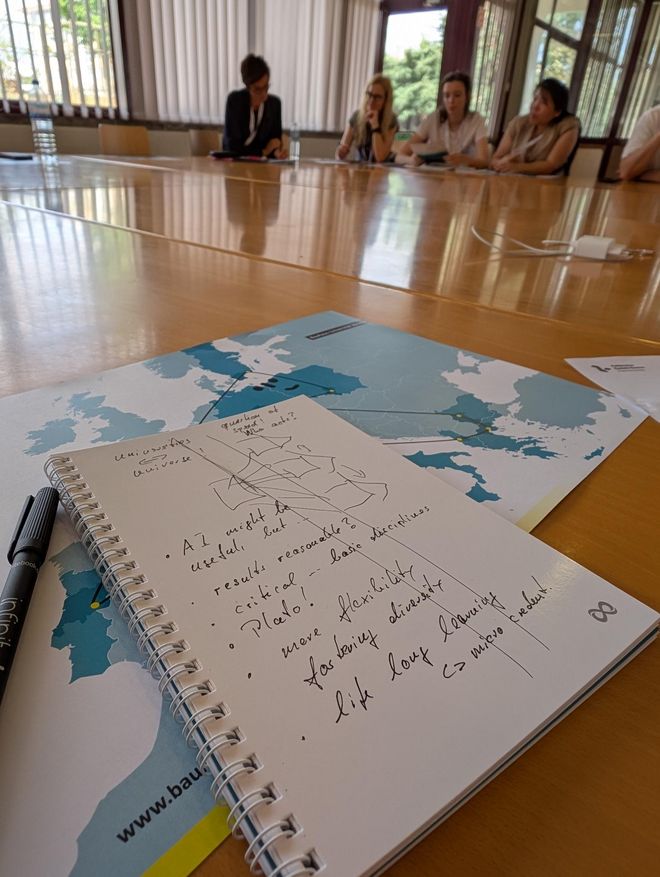 question of
speed!
Who acts?
universities
<=> universe!
• AI might be
useful, but --
• results reasonable?
• critical -- basic disciplines
• Plato!
• more flexibility
fostering diversity
• life long learning
<=> micro credent.
∞
infinit
www.bau.